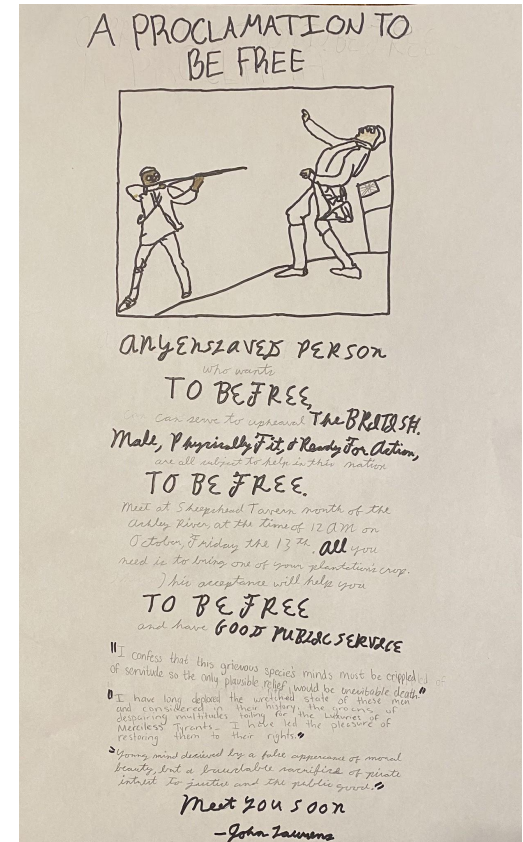 A PROCLAMATION TO
BE FREE
ANY ENSLAVED PERSON
who wants
TO BE FREE,
can serve to upheaval The BRITISH.
Male, Physically Fit, & Ready For Action,
are all subject to help in this nation
TO BE FREE.
Meet at Sheepshead Tavern north of the
Ashley River, at the time of 12 AM on
October, Friday the 13th. all you
need is to bring one of your plantation's crop.
This acceptance will help you
TO BE FREE
and have GOOD PUBLIC SERVICE
"I confess that this grievous species's minds must be crippled of
of servitude so the only plausible relief would be unevitable death."
"I have long deplored the wretched state of these men
and considered in their history, the groans of
despairing multitudes toiling for the Luxuries of
Merciless Tyrants. I have led the pleasure of
restoring them to their rights."
"Young mind decieved by a false apperance of moral
beauty, but a sacrifice of pirate
intrest to justice and the public good."
Meet you soon
-John Laurens